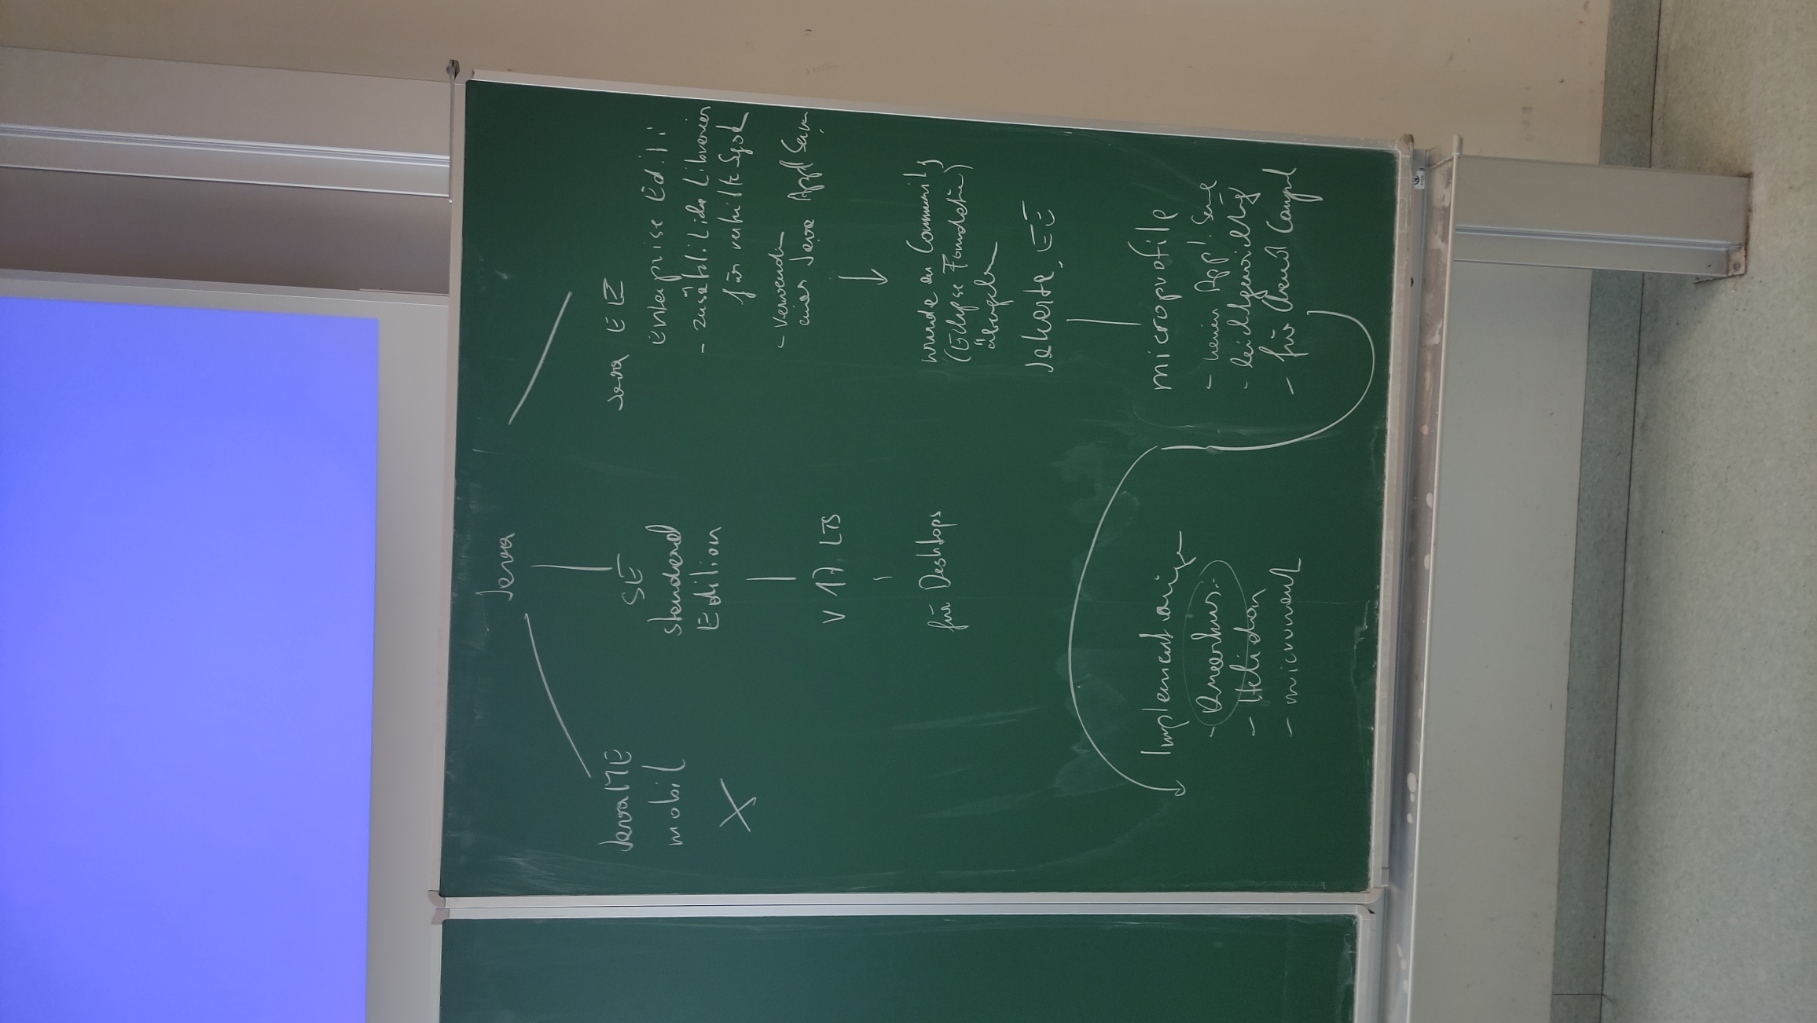 Java
Java ME
mobil
SE
standard
Edition
V 17 LTS
für Desktops
Java EE
Enterprise Editi
- zusätzliche Libraries
für verteilte Syst
- Verwendn
eines Java Appl Server
wurde an Community
(Eclipse Foundation)
übergeben
Jakarta EE
microprofile
- keinen Appl. Serve
- leichtgewichtig
- für Cloud Comput
Implementierungen
- Quarkus
- Helidon
- micronaut